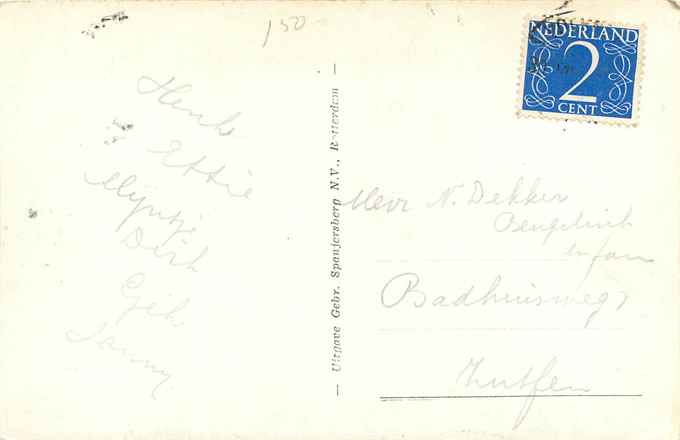 150
NEDERLAND
2
CENT
Henk
Ettie
Mijntje
Dirk
Gjik
Sanny
— Uitgave Gebr. Spanjersberg N.V., Rotterdam —
N. Dekker
en fam
Badhuisweg
Zutfen